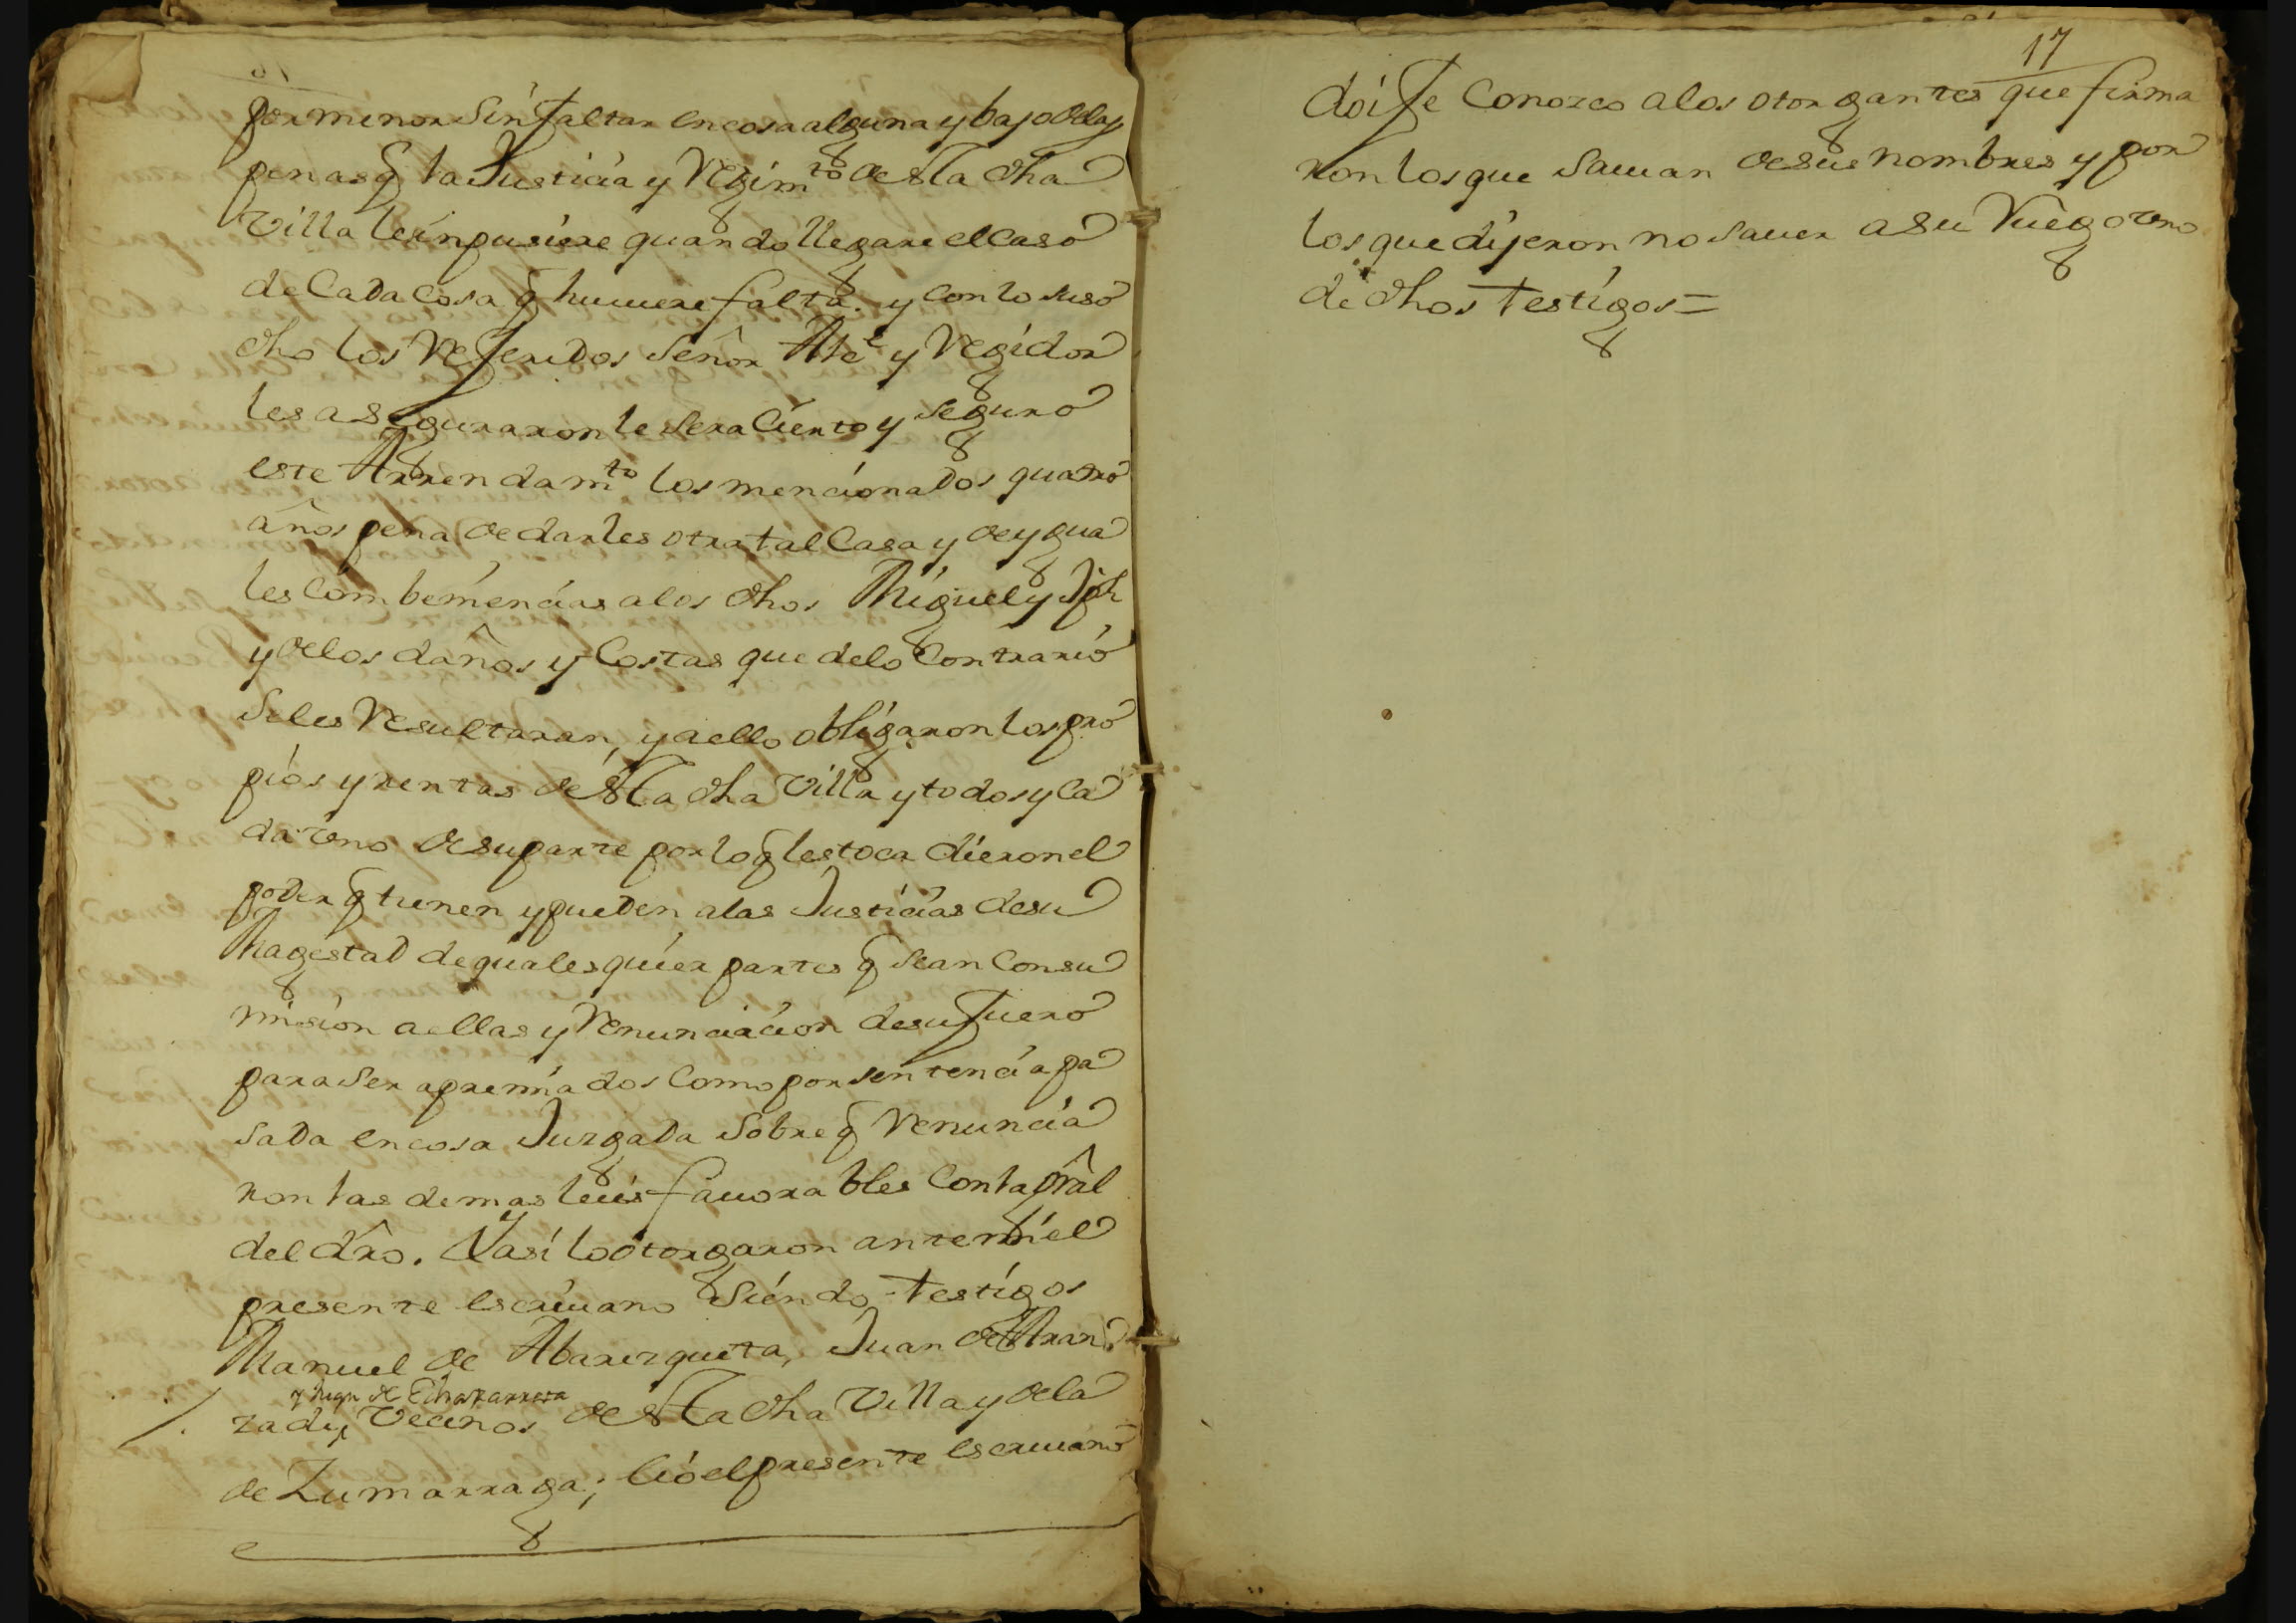 por menor Sin faltar en cosa alguna y bajo de las
penas q̃ la Justicia y Regim.to de esta dha
Villa le inpusiere quando llegare el caso
de Cada Cosa q̃ huuiere falta. y Con lo suso
dho los Referidos Señor Alc.e y Regidor
les aseguraron le sera Cierto y seguro
este Arrendam.to los mencionados quatro
años pena de darles otra tal Casa y de ygua
les Combeniencias a los dhos Miguel y Jph
y de los daños y Costas que de lo Contrario
se les Resultaran, y a ello obligaron los pro
pios y rentas de esta dha Villa y todos y Ca
da vno de su parte por lo q̃ les toca dieron el
poder q̃ tienen y pueden, a las Justicias de su
Magestad de qualesquier partes q̃ sean Con su
mision a ellas y Renunciacion de su fuero
para ser apremiados Como por sentencia pa
sada en cosa Juzgada sobre q̃ Renuncia
ron las demas leies fauorables Con la gr̃al
del dr̃o. Y asi lo otorgaron ante mi el
presente escriuano Siendo Testigos
Manuel de Abarizqueta, Juan de Aran
y Juan de Echazarreta
zadi, Vecinos de esta dha Villa y de la
de Zumarraga; Y io el presente escriuano
17
doi fe Conozco a los otorgantes que firma
ron los que sauian de sus nombres y por
los que dijeron no sauer a su Ruego vno
de dhos Testigos=